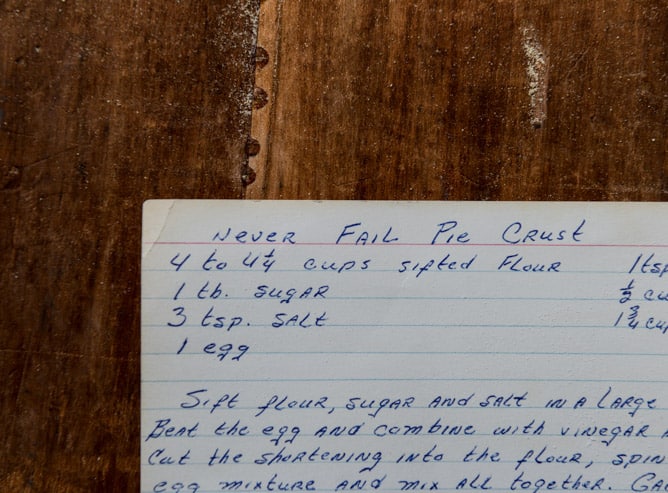 Never Fail Pie Crust
4 to 4¼ cups sifted Flour 1 tsp
1 tb. sugar ½ cu
3 tsp. salt 1¾ cup
1 egg
Sift flour, sugar and salt in a large
Beat the egg and combine with vinegar
Cut the shortening into the flour, spin
egg mixture and mix all together. Ga